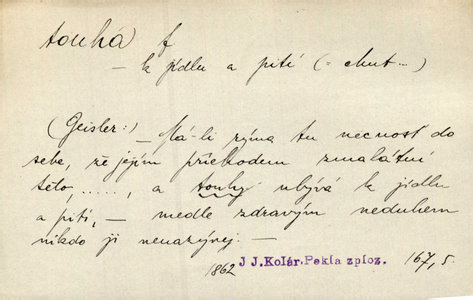 touha f
– k jídlu a pití (= chuť..)
(Geisler:) – Má-li rýma tu necnosť do
sebe, že jejím příchodem zmalátní
tělo, ....., a touhy ubývá k jídlu
a pití, – medle zdravým neduhem
nikdo ji nenazývej. –
1862 J J. Kolár. Pekla zploz. 167, 5.